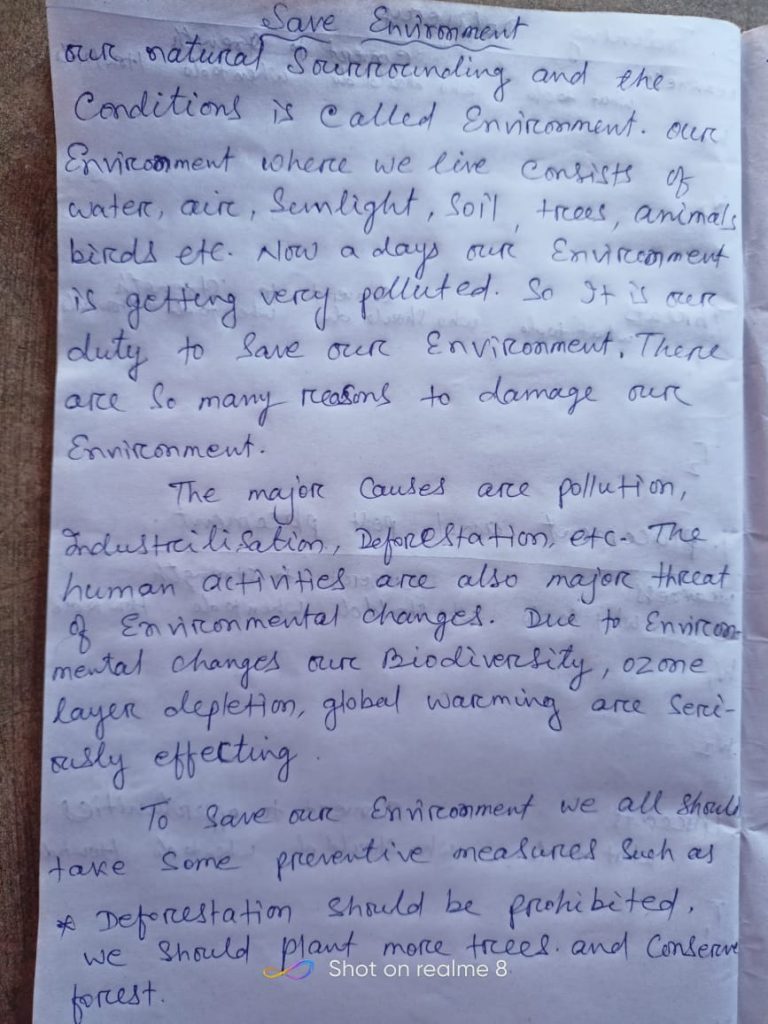 Save Environment
our natural Sourrounding and the
Conditions is Called Environment. our
Environment where we live Consists of
water, air, Sunlight, Soil, trees, animals
birds etc. Now a days our Environment
is getting very polluted. So It is our
duty to Save our Environment. There
are So many reasons to damage our
Environment.
The major Causes are pollution,
Industrilisation, Deforestation, etc. The
human activities are also major threat
of Environmental changes. Due to Environ-
mental Changes our Biodiversity, ozone
layer depletion, global warming are Seri-
ously effecting.
To Save our Environment we all Should
take Some preventive measures Such as
* Deforestation Should be prohibited.
we Should plant more trees. and Conserve
forest.
Shot on realme 8